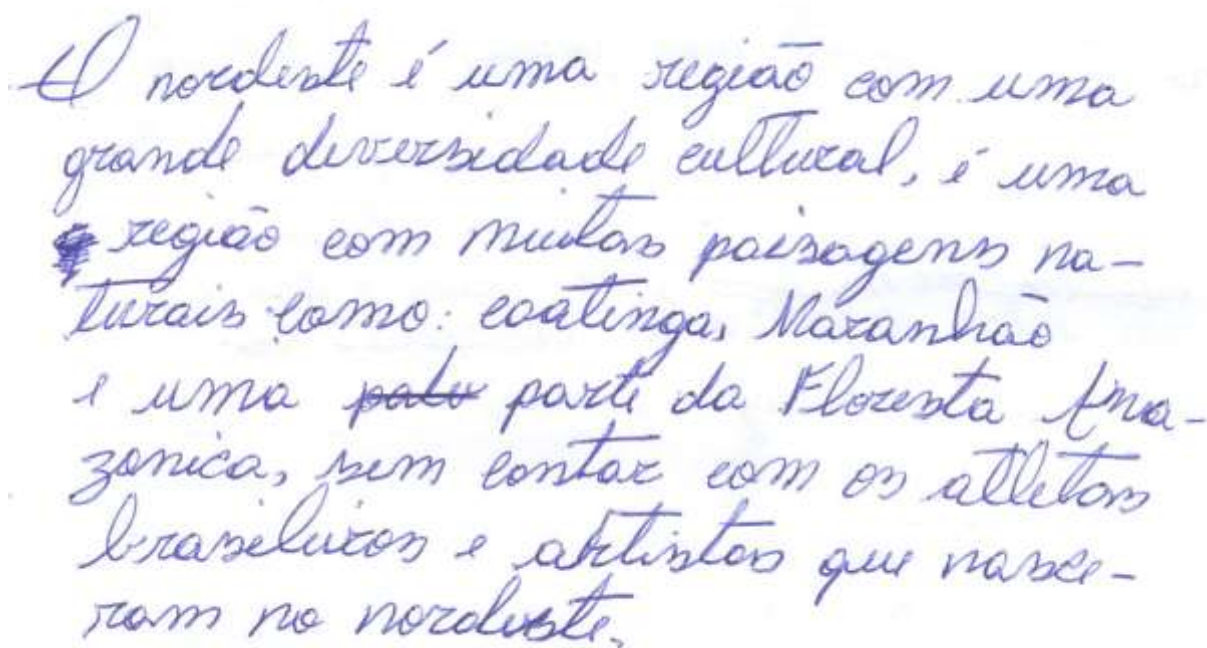 O nordeste é uma região com uma
grande diversidade cultural, é uma
região com muitas paisagens na-
turais como: caatinga, Maranhão
e uma parte da Floresta Ama-
zonica, sem contar com os atletas
brasileiros e artistas que nasce-
ram no nordeste.